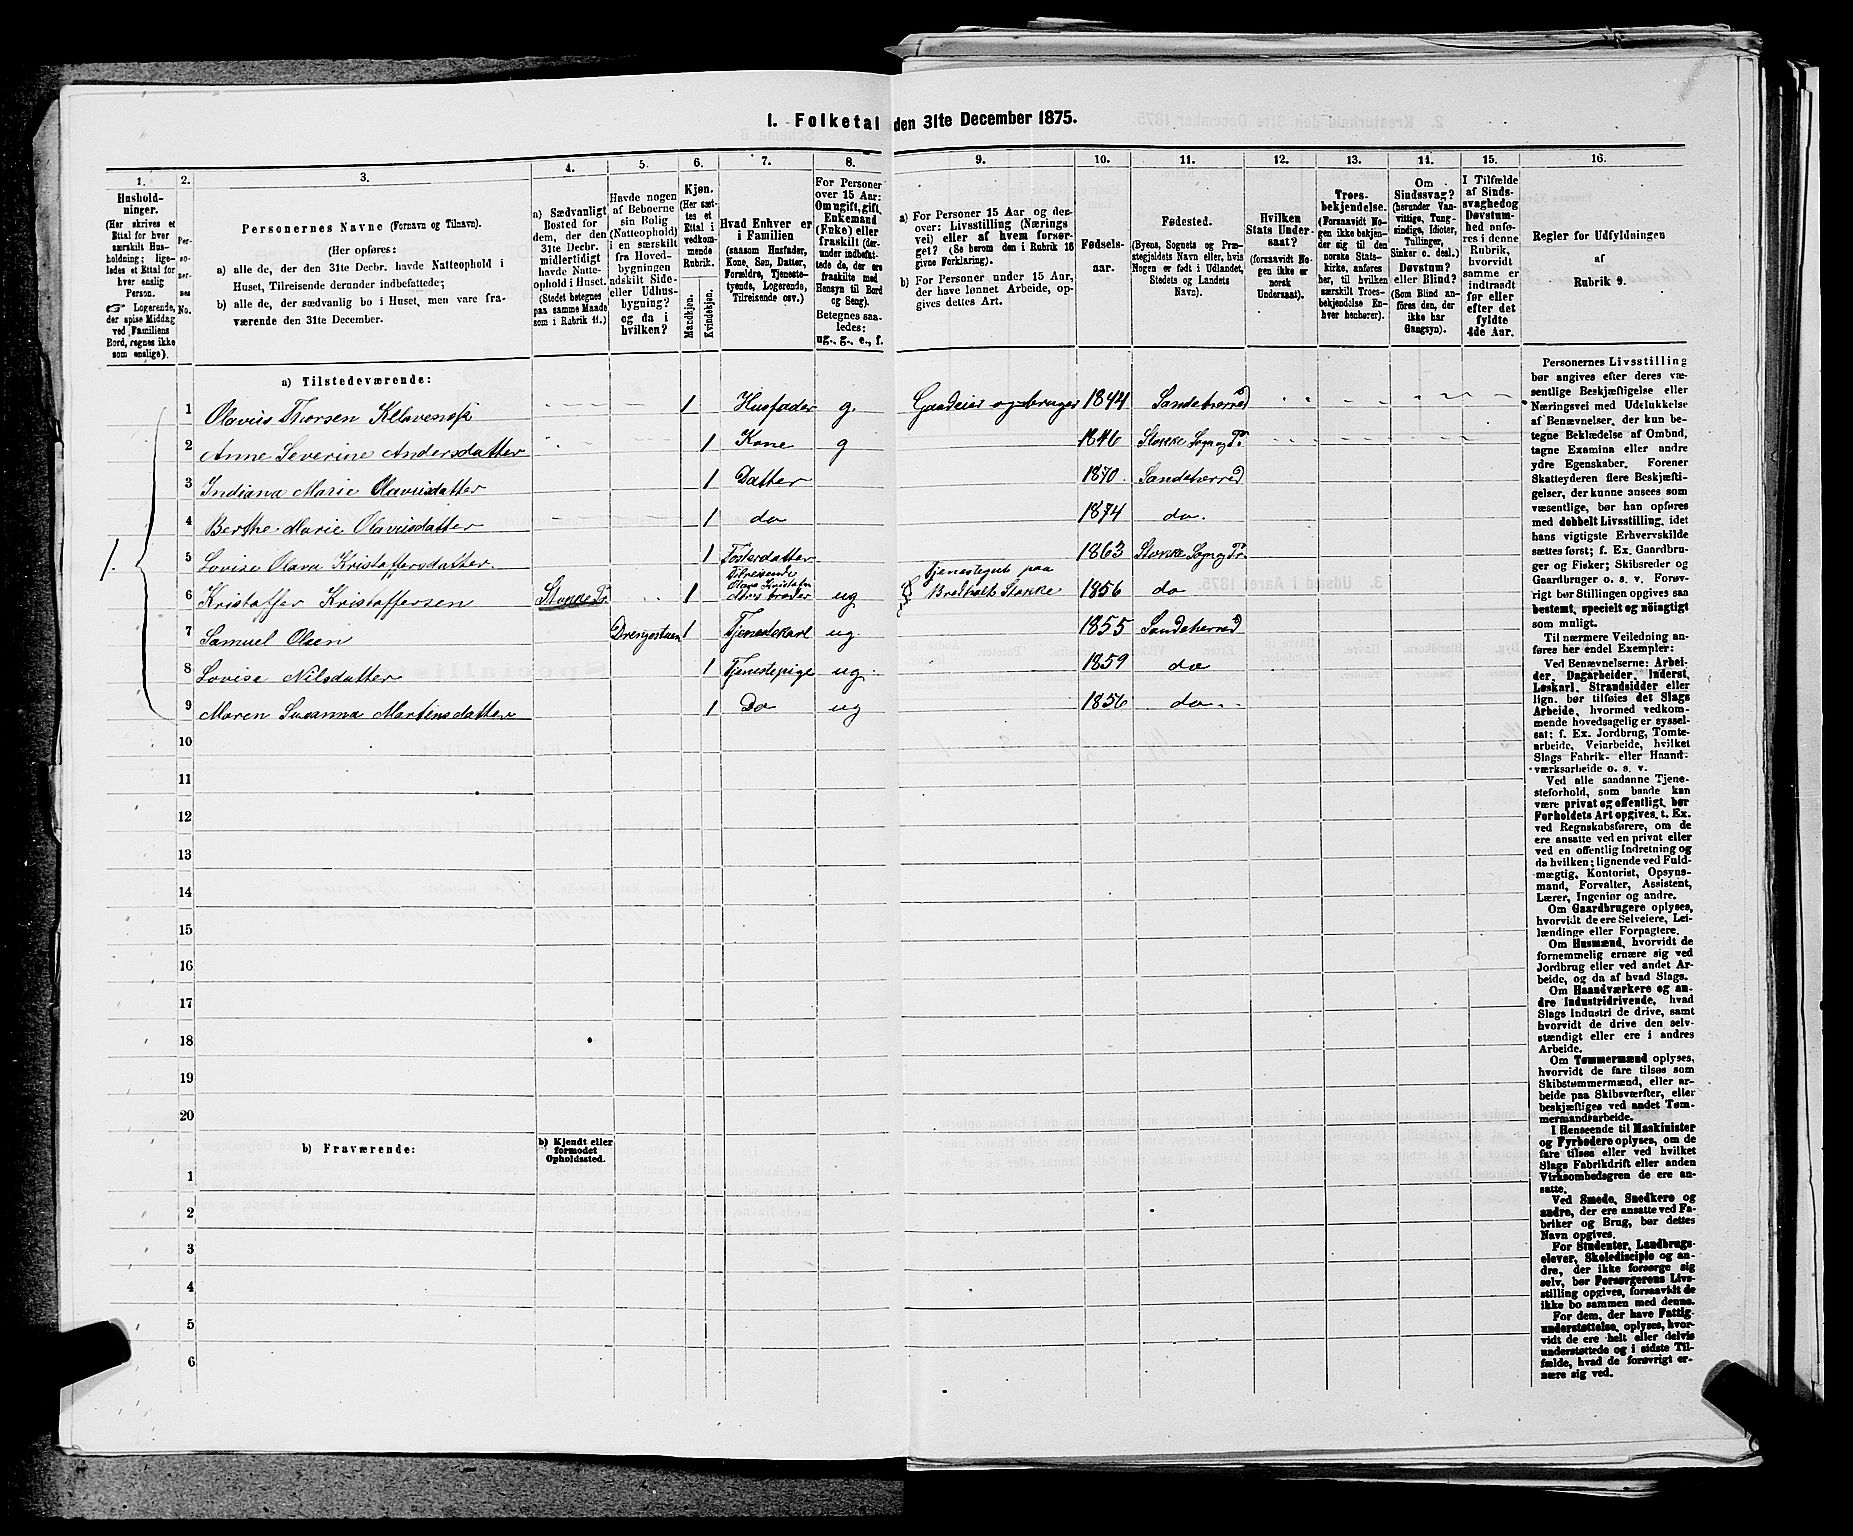 1. Folketal den 31te December 1875.
1.
Husholdninger.
(Her skrives et
Ettal for hver
særskilt Husholdning;
ligeledes et Ettal for
hver enslig
Person.
☞ Logerende,
der spise Middag
ved Familiens
Bord, regnes ikke
som enslige).
2.
Personernes
No.
3.
Personernes Navne (Fornavn og Tilnavn).
(Her opføres:
a) alle de, der den 31te Decbr. havde Natteophold i
Huset, Tilreisende derunder indbefattede;
b) alle de, der sædvanlig bo i Huset, men vare fraværende
den 31te December.
4.
a) Sædvanligt
Bosted for
dem, der den
31te Decbr.
midlertidigt
havde Natteophold
i Huset.
(Stedet betegnes
paa samme Maade
som i Rubrik 11.)
5.
Havde nogen
af Beboerne
sin Bolig
(Natteophold)
i en særskilt
fra Hovedbygningen
adskilt Side-
eller Udhusbygning?
og da i
hvilken?
6.
Kjøn.
(Her sættes
et
Ettal i
vedkommende
Rubrik.
Mandkjøn.
Kvindekjøn.
7.
Hvad Enhver er
i Familien
(saasom Husfader,
Kone, Søn, Datter,
Forældre, Tjenestetyende,
Logerende,
Tilreisende osv.)
8.
For Personer
over 15 Aar:
Om ugift, gift,
Enkemand
(Enke) eller
fraskilt (derunder
indbefattede
de, der ere
fraskilte med
Hensyn til Bord
og Seng).
Betegnes saaledes:
ug., g., e., f.
9.
a) For Personer 15 Aar og derover:
Livsstilling (Næringsvei)
eller af hvem forsørget?
(Se herom den i Rubrik 16
givne Forklaring).
b) For Personer under 15 Aar,
der have lønnet Arbeide, opgives
dettes Art.
10.
Fødselsaar.
11.
Fødested.
(Byens, Sognets og Præstegjeldets
Navn eller, hvis
Nogen er født i Udlandet,
Stedets og Landets
Navn).
12.
Hvilken
Stats Undersaat?
(forsaavidt Nogen
ikke er
norsk
Undersaat).
13.
Troesbekjendelse.
(Forsaavidt Nogen
ikke bekjender
sig til den
norske Statskirke,
anføres
her, til hvilken
særskilt Troesbekjendelse
Enhver
henhører).
14.
Om
Sindssvag?
(herunder Vanvittige,
Tungsindige,
Idioter,
Tullinger,
Sinker o. desl.)
Døvstum?
eller Blind?
(Som Blind anføres
den, der
ikke har
Gangsyn).
15.
I Tilfælde
af Sindssvaghed
og
Døvstumhed
anføres
i denne
Rubrik,
hvorvidt
samme er
indtraadt
før eller
efter det
fyldte
4de Aar.
16.
Regler for Udfyldningen
af
Rubrik 9.
a) Tilstedeværende:
1 Olavus Thorsen Klavenæs 1 Husfader g. Gaardeier og bruger 1844 Sandeherred
2 Anne Severine Andersdatter 1 Kone g 1846 Stokke Sogn og Pr.
3 Indiana Marie Olavusdatter 1 Datter 1870 Sandeherred
4 Berthe Marie Olavusdatter 1 do 1874 do.
1. 5 Lovise Olava Kristoffersdatter. 1 Fosterdatter 1863 Stokke Sogn og Pr.
6 Kristoffer Kristoffersen Stokke Pr. 1 Tilreisende broder ug Tjenestegut paa Stokke 1856 do
7 Samuel Olsen Drengestuen 1 Tjenestekarl ug. 1855 Sandeherred
8 Lovise Nilsdatter 1 Tjenestepige ug. 1859 do
9 Maren Susanna Martinsdatter 1 Do ug 1856 do.
10
11
12
13
14
15
16
17
18
19
20
b) Fraværende:
b) Kjendt eller
formodet
Opholdssted.
1
2
3
4
5
6
Personernes Livsstilling
bør angives efter deres væsentlige
Beskjæftigelse eller
Næringsvei med Udelukkelse
af Benævnelser, der kun betegne
Beklædelse af Ombud,
tagne Examina eller andre
ydre Egenskaber. Forener
Skatteyderen flere Beskjæftigelser,
der kunne ansees som
væsentlige, bør han opføres
med dobbelt Livsstilling, idet
hans vigtigste Erhvervskilde
sættes først; f. Ex. Gaardbruger
og Fisker; Skibsreder og
Gaardbruger o. s. v. Forøvrigt
bør Stillingen opgives saa
bestemt, specielt og nöiagtigt
som muligt.
Til nærmere Veiledning anføres
her endel Exempler:
Ved Benævnelserne: Arbeider,
Dagarbeider, Inderst,
Løskarl, Strandsidder eller
lign. bør tilføies det Slags
Arbeide, hvormed vedkommende
hovedsagelig er sysselsat;
f. Ex. Jordbrug, Tomtearbeide,
Veiarbeide, hvilket
Slags Fabrik- eller Haandværksarbeide
o. s. v.
Ved alle saadanne Tjenesteforhold,
som baade kan
være privat og offentligt, bør
Forholdets Art opgives, t. Ex.
ved Regnskabsførere, om de
ere ansatte ved en privat eller
ved en offentlig Indretning og
da hvilken; lignende ved Fuldmægtig,
Kontorist, Opsynsmand,
Forvalter, Assistent,
Lærer, Ingeniør og andre.
Om Gaardbrugere oplyses,
hvorvidt de ere Selveiere, Leilændinge
eller Forpagtere.
Om Husmænd, hvorvidt de
fornemmelig ernære sig ved
Jordbrug eller ved andet Arbeide,
og da af hvad Slags.
Om Haandværkere og andre
Industridrivende, hvad
Slags Industri de drive, samt
hvorvidt de drive den selvstændigt
eller ere i andres
Arbeide.
Om Tømmermænd oplyses,
hvorvidt de fare tilsøs som
Skibstømmermænd, eller arbeide
paa Skibsværfter, eller
beskjæftiges ved andet Tømmermandsarbeide.
I Henseende til Maskinister
og Fyrbødere oplyses, om de
fare tilsøs eller ved hvilket
Slags Fabrikdrift eller anden
Virksombedsgren de ere ansatte.
Ved Smede, Snedkere og
andre, der ere ansatte ved Fabriker
og Brug, bør dettes
Navn opgives.
For Studenter, Landbrugselever,
Skoledisciple og andre,
der ikke forsørge sig
selv, bør Forsørgerens Livsstilling
opgives, forsaavidt de
ikke bo sammen med denne.
For dem, der have Fattigunderstøttelse,
oplyses, hvorvidt
de ere helt eller delvis
understøttede og i sidste Tilfælde,
hvad de forøvrigt ernære
sig ved.